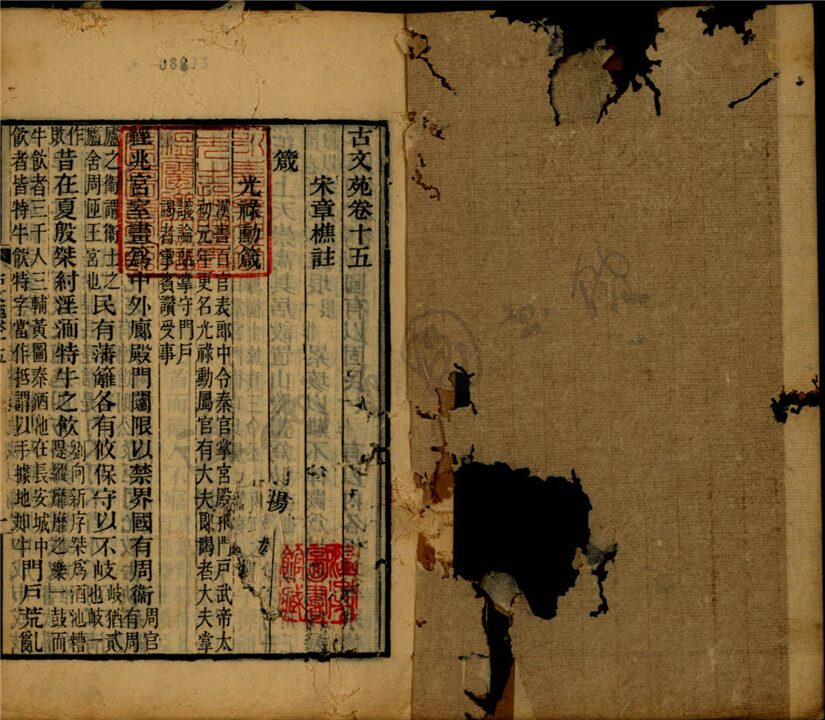 古文苑卷十五
宋章樵註
箴
光祿勳箴
漢書百官表郎中令秦官掌宮殿掖門戶武帝太
初元年更名光祿勳屬官有大夫郎謁者大夫掌
議論郎掌守門戶
謁者掌賓讚受事
經兆宮室畫爲中外廊殿門闥限以禁界國有周衞周官有周
廬之衞謂衞士之廬舍周匝王宮也民有藩籬各有攸保守以不岐岐猶貳也岐一
作敗昔在夏殷桀紂淫湎特牛之飲劉向新序桀爲酒池糟隄縱靡靡之樂一鼓而
牛飲者三千人三輔黃圖秦酒池在長安城中飲者皆特牛飲特字當作抵謂以手據地如牛門戶荒亂